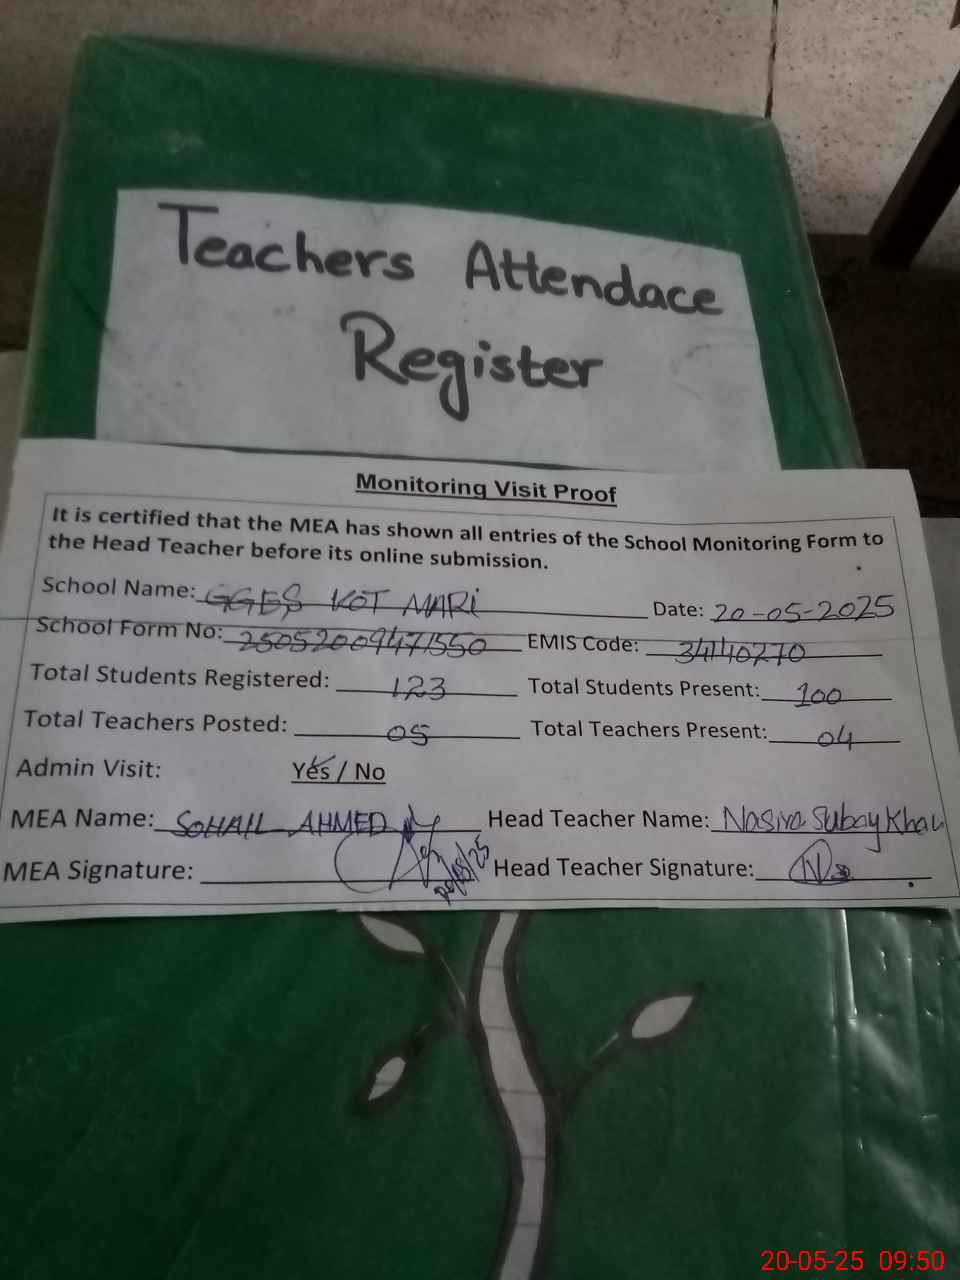 Teachers Attendace
Register
Monitoring Visit Proof
It is certified that the MEA has shown all entries of the School Monitoring Form to
the Head Teacher before its online submission.
School Name: GGES KOT MARI Date: 20-05-2025
School Form No: 25052009471550 EMIS Code: 34140270
Total Students Registered: 123 Total Students Present: 100
Total Teachers Posted: 05 Total Teachers Present: 04
Admin Visit: Yes / No
MEA Name: SOHAIL AHMED Head Teacher Name: Nasira Subay Khan
MEA Signature: 20/05/25 Head Teacher Signature:
20-05-25 09:50